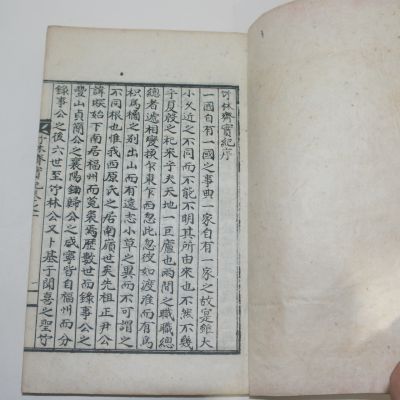 竹林齋實紀序
一國自有一國之事典一家自有一家之故寔雖大
小久近之不同而不能不明其所由來也不然不幾
于夏殷之杞宋乎夫天地一巨廬也兩間之職職總
總者遞相變換乍東乍西忽此忽彼如渡淮而有爲
枳爲橘之别出山而有遠志小草之異而不可謂之
不同根也惟我西原氏之居南嶺世矣先祖正尹公
諱 始下南居福州而菟裘焉歷數世而錄事公之
豐山貞簡公之襄陽鋤歸公之咸寧皆自福州而分
錄事公之後六世至竹林公又卜基于聞喜之聖竹
竹林齋實紀卷之一